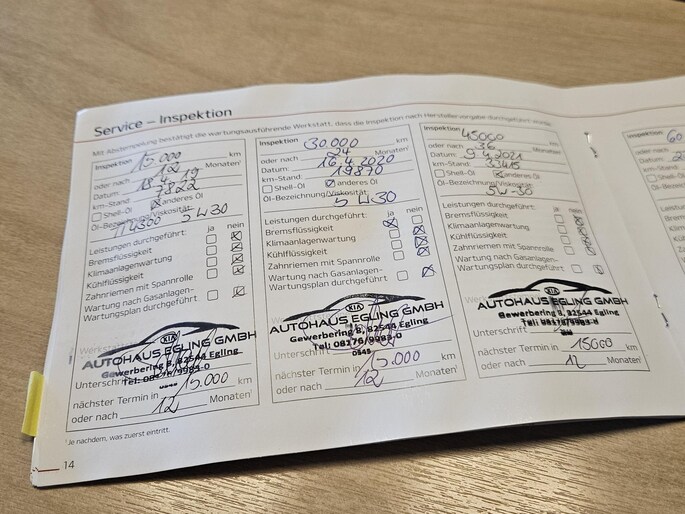 Service – Inspektion
Mit Abstempelung bestätigt die wartungsausführende Werkstatt, dass die Inspektion nach Herstellervorgabe durchgeführt wurde.
Inspektion 15.000 km
oder nach 12 Monaten¹
Datum: 18.4.19
km-Stand: 7822
Shell-Öl anderes Öl
Öl-Bezeichnung/Viskosität:
5W30
Leistungen durchgeführt: ja nein
Bremsflüssigkeit
Klimaanlagenwartung
Kühlflüssigkeit
Zahnriemen mit Spannrolle
Wartung nach Gasanlagen-
Wartungsplan durchgeführt
KIA
AUTOHAUS EGLING GMBH
Gewerbering 8, 82544 Egling
Tel: 08176/9985-0
Unterschrift
nächster Termin in 15.000 km
oder nach 12 Monaten¹
Inspektion 30.000 km
oder nach 24 Monaten¹
Datum: 16.4.2020
km-Stand: 19870
Shell-Öl anderes Öl
Öl-Bezeichnung/Viskosität:
5W30
Leistungen durchgeführt: ja nein
Bremsflüssigkeit
Klimaanlagenwartung
Kühlflüssigkeit
Zahnriemen mit Spannrolle
Wartung nach Gasanlagen-
Wartungsplan durchgeführt
KIA
AUTOHAUS EGLING GMBH
Gewerbering 8, 82544 Egling
Tel: 08176/9985-0
Unterschrift
nächster Termin in 15.000 km
oder nach 12 Monaten¹
Inspektion 45000 km
oder nach 36 Monaten¹
Datum: 9.4.2021
km-Stand: 33415
Shell-Öl anderes Öl
Öl-Bezeichnung/Viskosität:
5W-30
Leistungen durchgeführt: ja nein
Bremsflüssigkeit
Klimaanlagenwartung
Kühlflüssigkeit
Zahnriemen mit Spannrolle
Wartung nach Gasanlagen-
Wartungsplan durchgeführt
KIA
AUTOHAUS EGLING GMBH
Gewerbering 8, 82544 Egling
Tel: 08176/9985-0
Unterschrift
nächster Termin in 15000 km
oder nach 12 Monaten¹
Inspektion 60
oder nach
Datum:
km-Stand:
¹ Je nachdem, was zuerst eintritt.
14